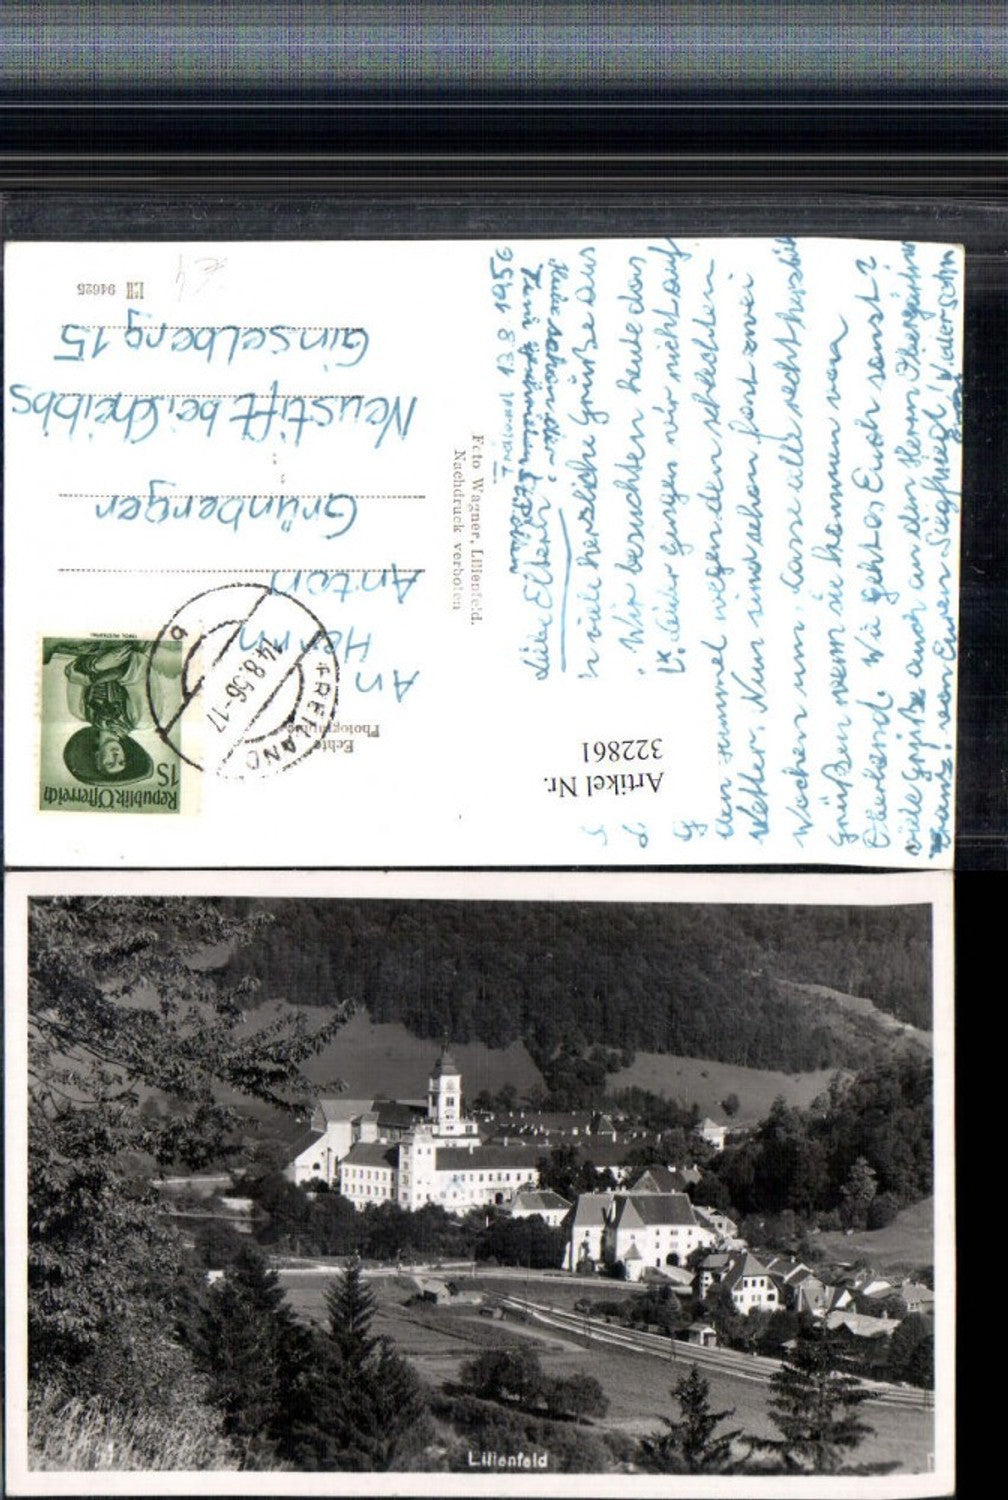 Traisen 13.8.1956
Liebe Eltern!
viele herzliche Grüße aus
Wir besuchten heute das
Leider gingen wir nicht auf
wegen den schlechten
Wetter. Nun sind schon fast zwei
Wochen um. Lasse alle recht herzlich
Grüßen wenn sie kommen vom
Oberland. Wie geht es Euch sonst?
viele Grüße auch an den Herrn
von Euren Siegfried
Foto Wagner, Lilienfeld.
Nachdruck verboten
Echte
Photographie
Republik Österreich
1S
FREILAND
14.8.56-17
a
An
Herrn
Anton
Grünberger
Neustift bei Scheibbs
Ginselberg 15
94625
Artikel Nr.
322861
Lilienfeld